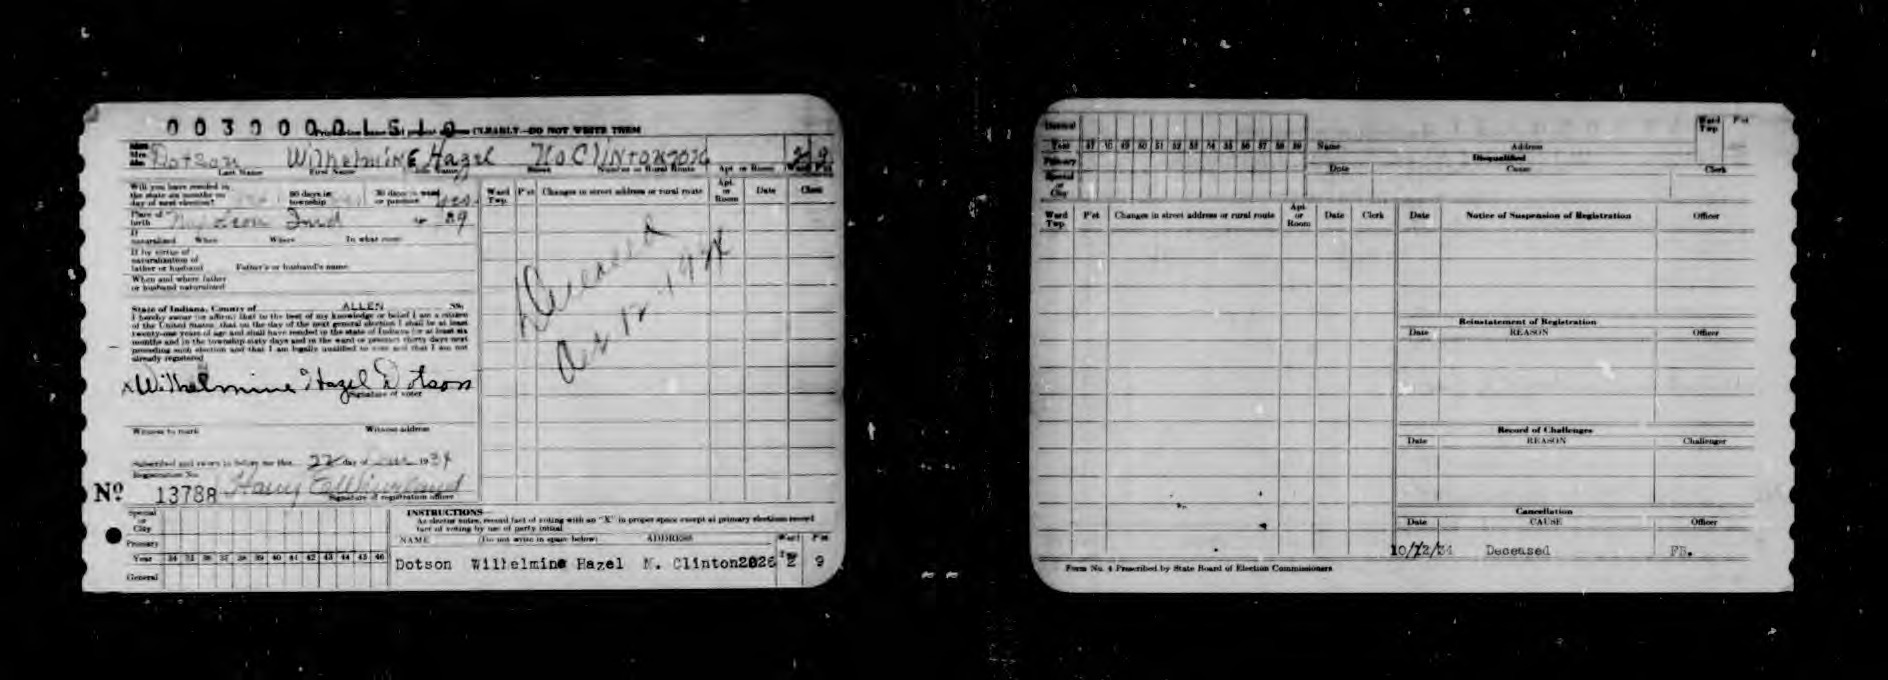 CLEARLY—DO NOT WRITE THEM
Mrs.
Dotson Wilhelmine Hazel No Clinton 2026 2 9
Last Name First Name Name Street Number or Rural Route Apt. or Room Ward P'ct
Will you have resided in
the state six months on
day of next election?
60 days in
township
30 days in ward
or precinct yes
Ward
Twp.
P'ct
Changes in street address or rural route
Apt.
or
Room
Date
Clerk
Place of
birth Ind 89
If
naturalized When Where In what court
If by virtue of
naturalization of
father or husband Father's or husband's name
When and where father
or husband naturalized
State of Indiana, County of ALLEN SS:
I hereby swear (or affirm) that to the best of my knowledge or belief I am a citizen
of the United States; that on the day of the next general election I shall be at least
twenty-one years of age and shall have resided in the state of Indiana for at least six
months and in the township sixty days and in the ward or precinct thirty days next
preceding such election and that I am legally qualified to vote and that I am not
already registered
x Wilhelmine Hazel Dotson
Signature of voter
Deceased
Witness to mark Witness address
Subscribed and sworn to before me this 22 day of 1934
Registration No.
Nº 13788 Harry
Signature of registration officer
Special
or
City
Primary
Year 34 35 36 37 38 39 40 41 42 43 44 45 46
General
INSTRUCTIONS—
As elector votes, record fact of voting with an "X" in proper space except at primary elections record
fact of voting by use of party initial
NAME (Do not write in space below) ADDRESS Ward P'ct
Dotson Wilhelmine Hazel N. Clinton2026 2 9
General
Year 47 48 49 50 51 52 53 54 55 56 57 58 59
Primary
Special
or
City
Name Address
Ward
Twp.
P'ct
Disqualified
Date Cause Clerk
Ward
Twp.
P'ct
Changes in street address or rural route
Apt.
or
Room
Date
Clerk
Date Notice of Suspension of Registration Officer
Reinstatement of Registration
Date REASON Officer
Record of Challenges
Date REASON Challenger
Cancellation
Date CAUSE Officer
10/12/34 Deceased FB.
Form No. 4 Prescribed by State Board of Election Commissioners